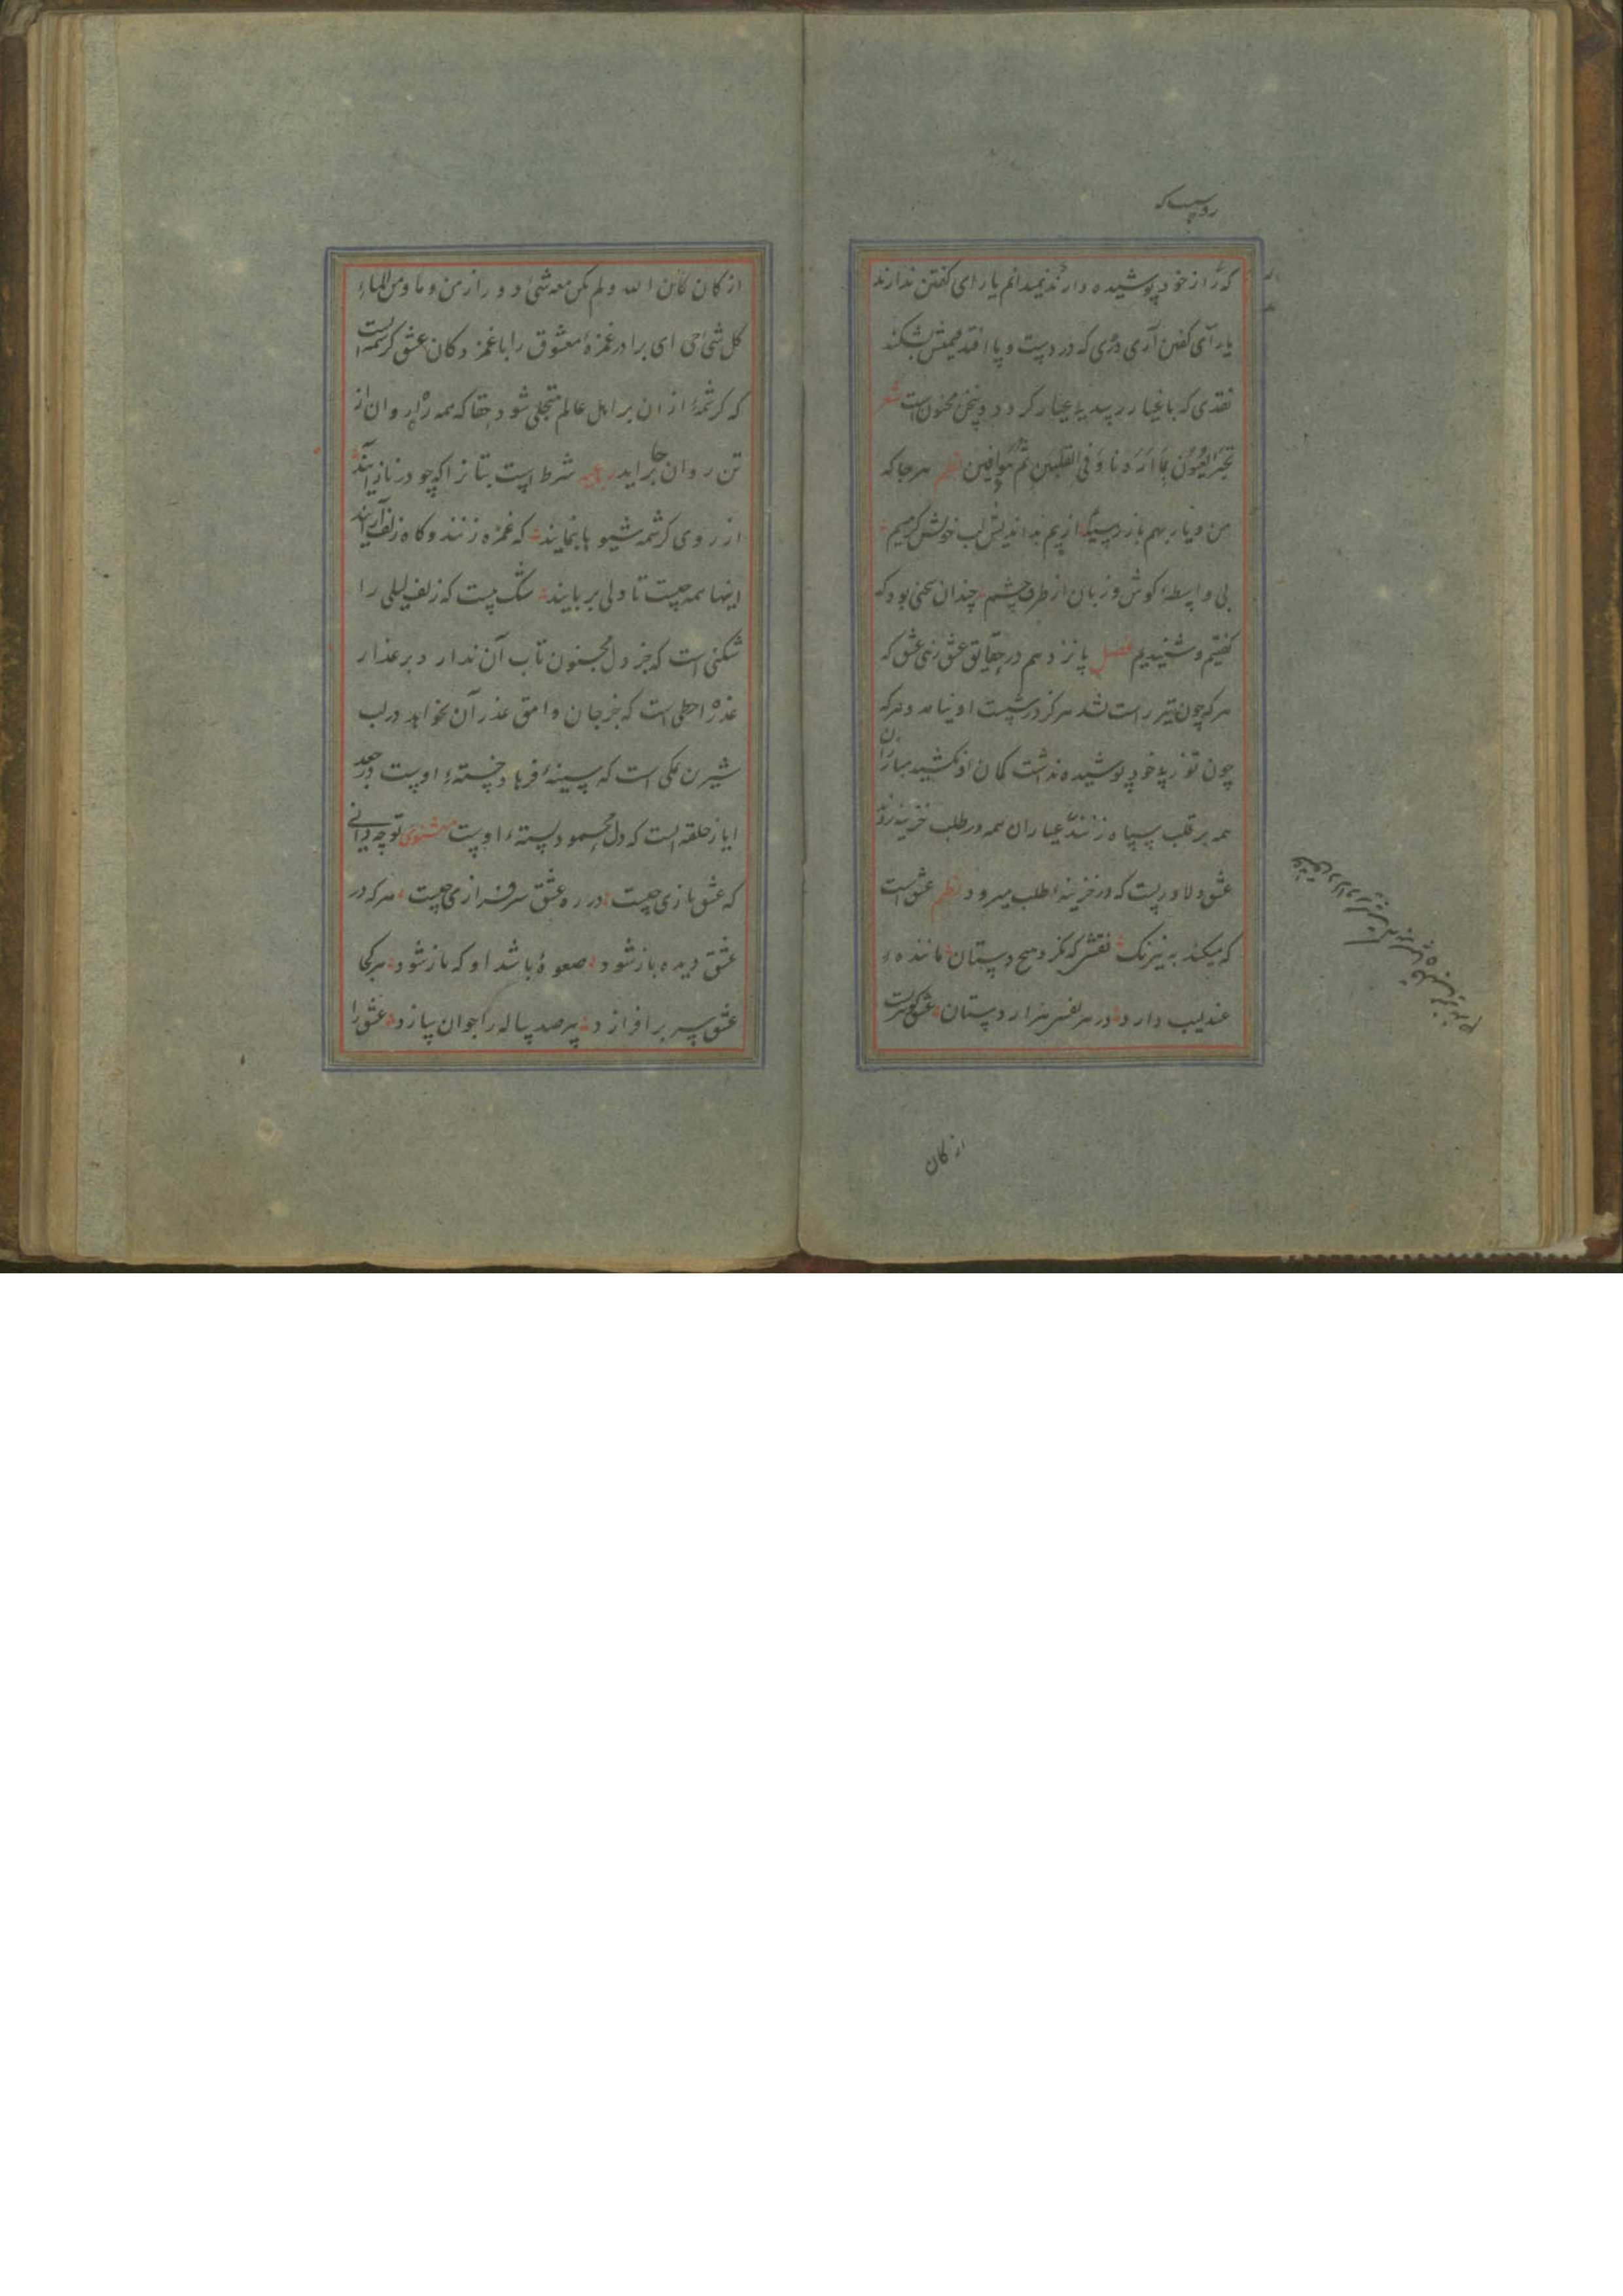 روییست که
که راز خود پوشیده دارند نمیدانم یا رای گفتن ندارند
یارای گفتن آری دری که در دست و پا افتد قیمتش بشکند
نقدی که باغیار رسد بی عیار گردد و سخن مجنون است شعر
العیون بما اردنا و فی القلبین ثم نظم هر جا که
من و یار بهم باز رسیم از بیم بداندیش لب خویش گزیم
بی واسطهٔ کوش و زبان از طرف چشم چندان سخنی بود که
گفتیم و شنیدیم فصل پانزدهم در حقایق عشق زنی عشق که
هر که چون تیر راست نشد هرگز در شست او نیامد و هر که
چون توز پی خود پوشیده نداشت کمان او نکشید مبارزان
همه بر قلب سپاه زنند عیاران همه در طلب خزینه روند
عشق دلاوریست که در خزینهٔ طلب میرود نظم عشق است
که میکند به نیرنگ نقشی که نکرد هیچ دستان مانندهء
عندلیب دارد در هر نفسی هزار دستان عشق گوهریست
از کان
از کان کان الله و لم یکن معه شئ دو راز من و ما و من الماء
کل شئ حی ای برادر غمزهٔ معشوق را با غمز دکان عشق کرشمه است
که کرشمهٔ از ان بر اهل عالم متجلی شود حقا که همه را روان از
تن روان برآید رباعیه شرط است بتانرا که چو در ناز آیند
از روی کرشمه شیوها بنمایند که غمزه زنند و کاه زلف آرایند
اینها همه چیست تا دلی بربایند شک نیست که زلف لیلی را
شکنی است که جز دل مجنون تاب آن ندارد و بر عذار
عذرا خطی است که جز جان وامق عذر آن نخواهد در لب
شیرین نمکی است که سینهٔ فرهاد خستهء اوست در جعد
ایاز حلقه است که دل محمود بستهء اوست مثنوی تو چه دانی
که عشق بازی چیست در ره عشق سرفرازی چیست هر که در
عشق دیده باز شود صعوهٔ باشد او که باز شود هر کجا
عشق سر برافرازد پیر صد ساله را جوان سازد عشق را